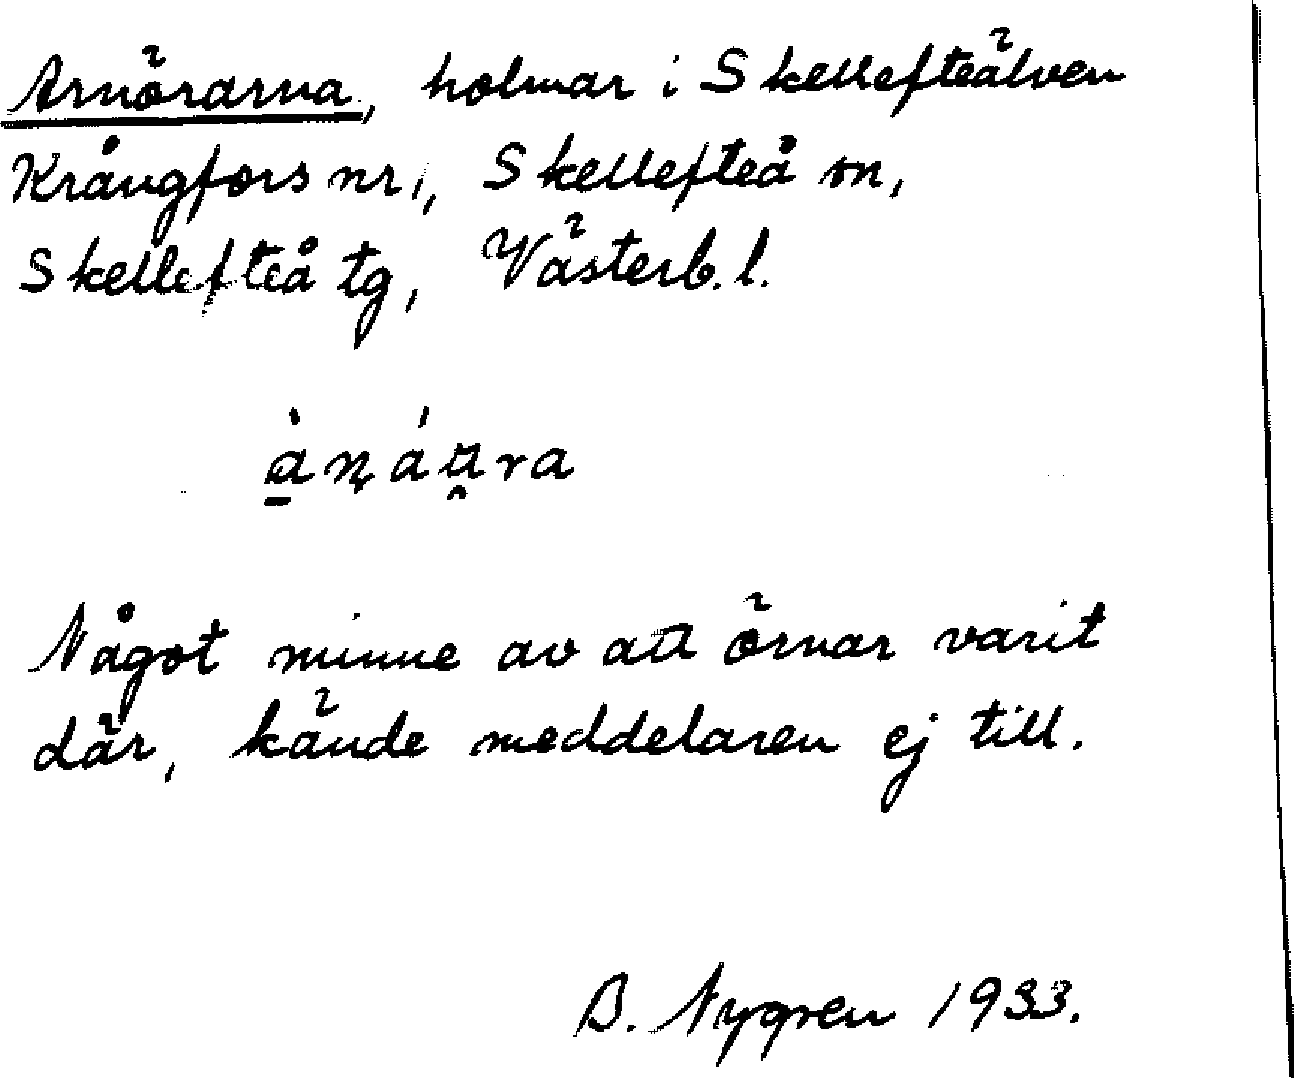 Arnörarna, holmar i Skellefteälven
Krångfors nr 1, Skellefteå sn,
Skellefteå tg, Västerb. l.
Något minne av att örnar varit
där, kände meddelaren ej till.
B. Nygren 1933.